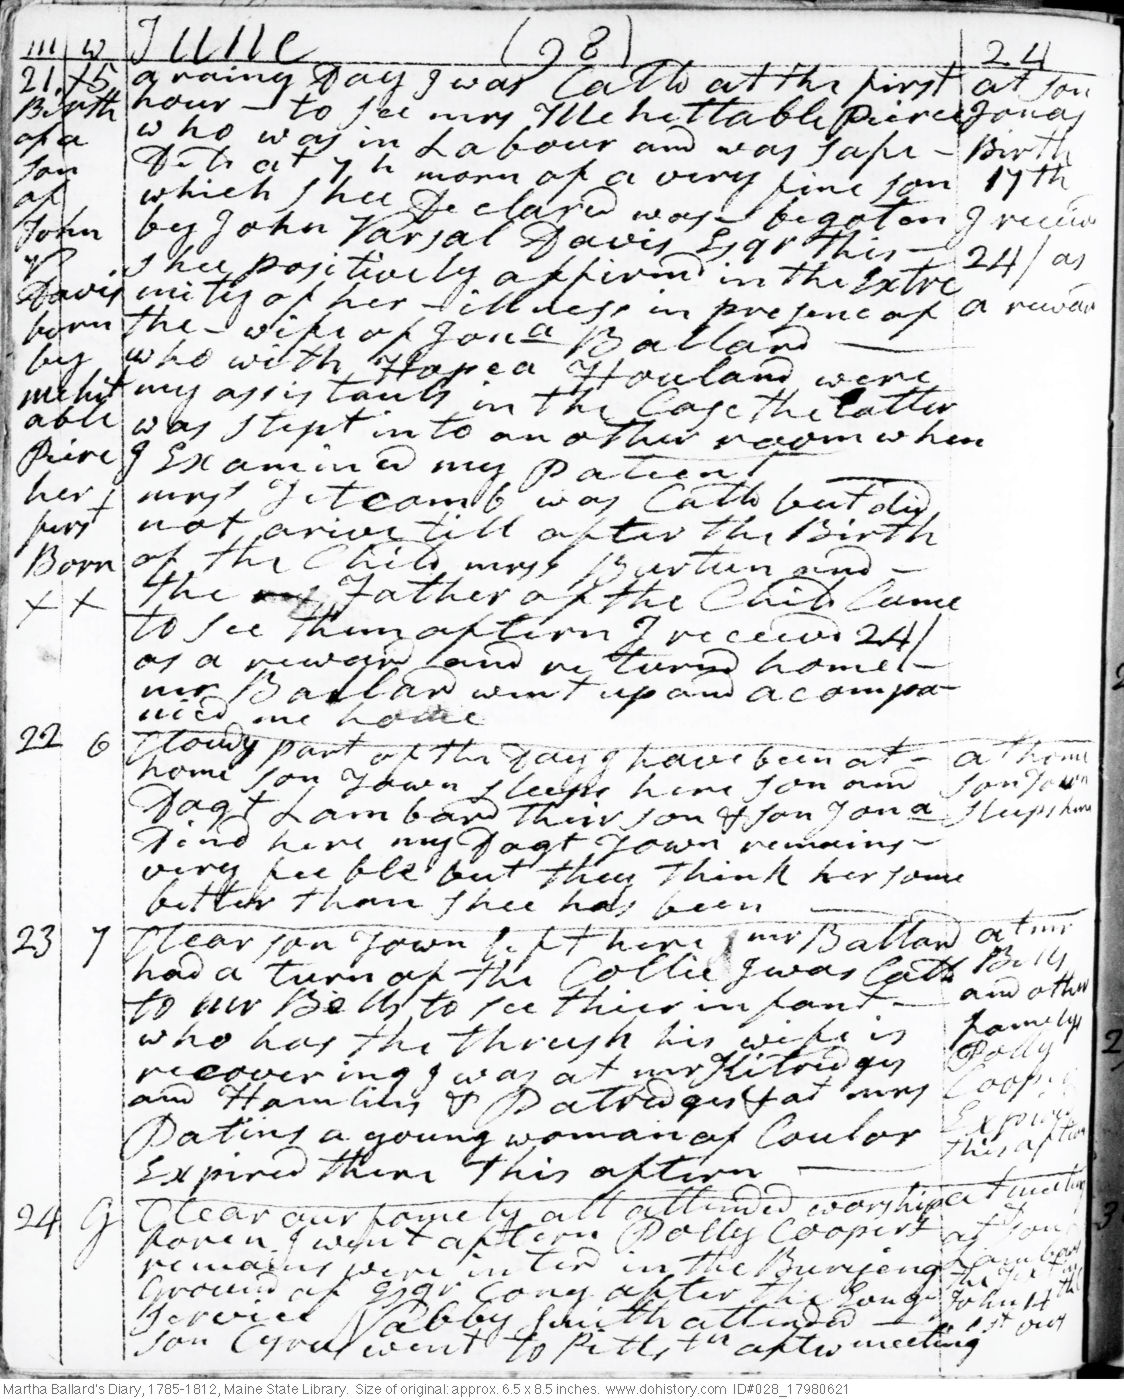 m w June (98) 24
21 x5 a rainy Day I was Calld at the first
hour - to see mrs Mehettable Pierce
who was in Labour and was safe -
Delt at 7 h morn of a very fine son
which shee Declard was begoten
by John Varsal Davis Esqr this -
shee positively affirmd in the Extre
mity of her - illness in presence of
the - wife of Jona Ballard
who with Hopea Houland were
my assistants in the Case the Latter
was stept into another room when
I Examined my Patient
mrss Titcomb was Calld but did
not arive till after the Birth
of the Child mrss Burtun and -
the Father of the Child Came
to see them aftern I received 24/
as a reward and returnd home -
mr Ballard went up and acompa-
nied me home
Birth
of a
son
of
John
V
Davis
born
by
mehit
able
Piere
her
first
Born
x x
at son
Jonas
Birth
17th
I receivd
24/ as
a reward
22 6 Clowdy part of the Day I have been at -
home son Town sleeps here son and
Dagt Lambard their son & son Jona
Dind here my Dagt Town remains -
very feeble but they think her some
better than shee has been
at home
son Town
sleeps here
23 7 Clear son Town left here mr Ballard
had a turn of the Collic I was Calld
to mr Bells to see thier infant -
who has the thrush his wife is
recovering I was at mr Kitredges
and Hamlins & Patredges & at mrs
Patins a young woman of Coulor
Expired there this aftern
at mr
Bells
and other
famelys
Polly
Cooper
Expird
this aftern
24 G Clear our famely all attended worship
foren I went aftern Polly Coopers
remains were interd in the Burijeng
Ground of Esqr Cony after the Long
service Nabby Smith attended
son Cyrus went to Pitts tn after meeting
at meeting
at Jona
Lambards
the text in
John 14 th
1 st vers
Martha Ballard's Diary, 1785-1812, Maine State Library. Size of original: approx. 6.5 x 8.5 inches. www.dohistory.com ID#028_17980621